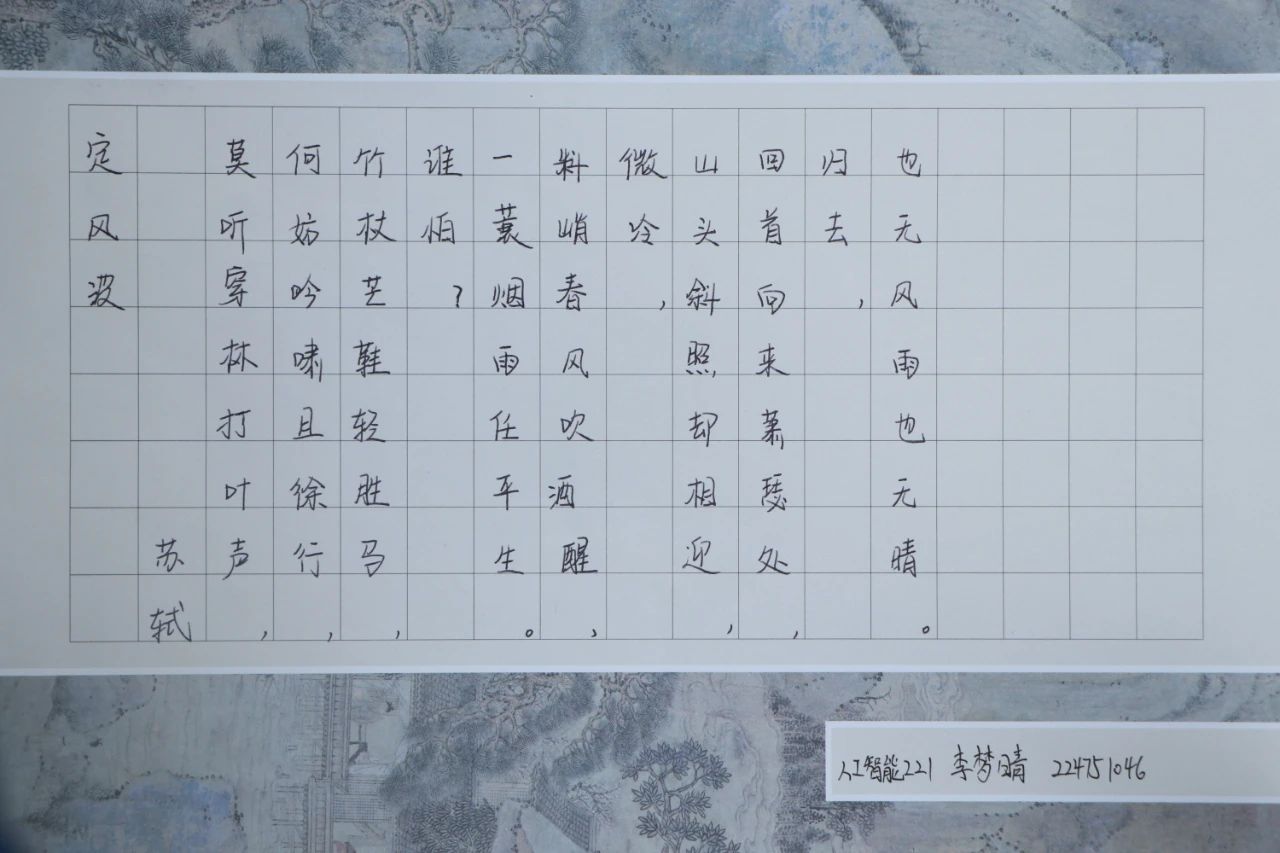 定风波
苏轼
莫听穿林打叶声，
何妨吟啸且徐行，
竹杖芒鞋轻胜马，
谁怕？
一蓑烟雨任平生。
料峭春风吹酒醒，
微冷，
山头斜照却相迎，
回首向来萧瑟处，
归去，
也无风雨也无晴。
人工智能221 李梦晴 224751046